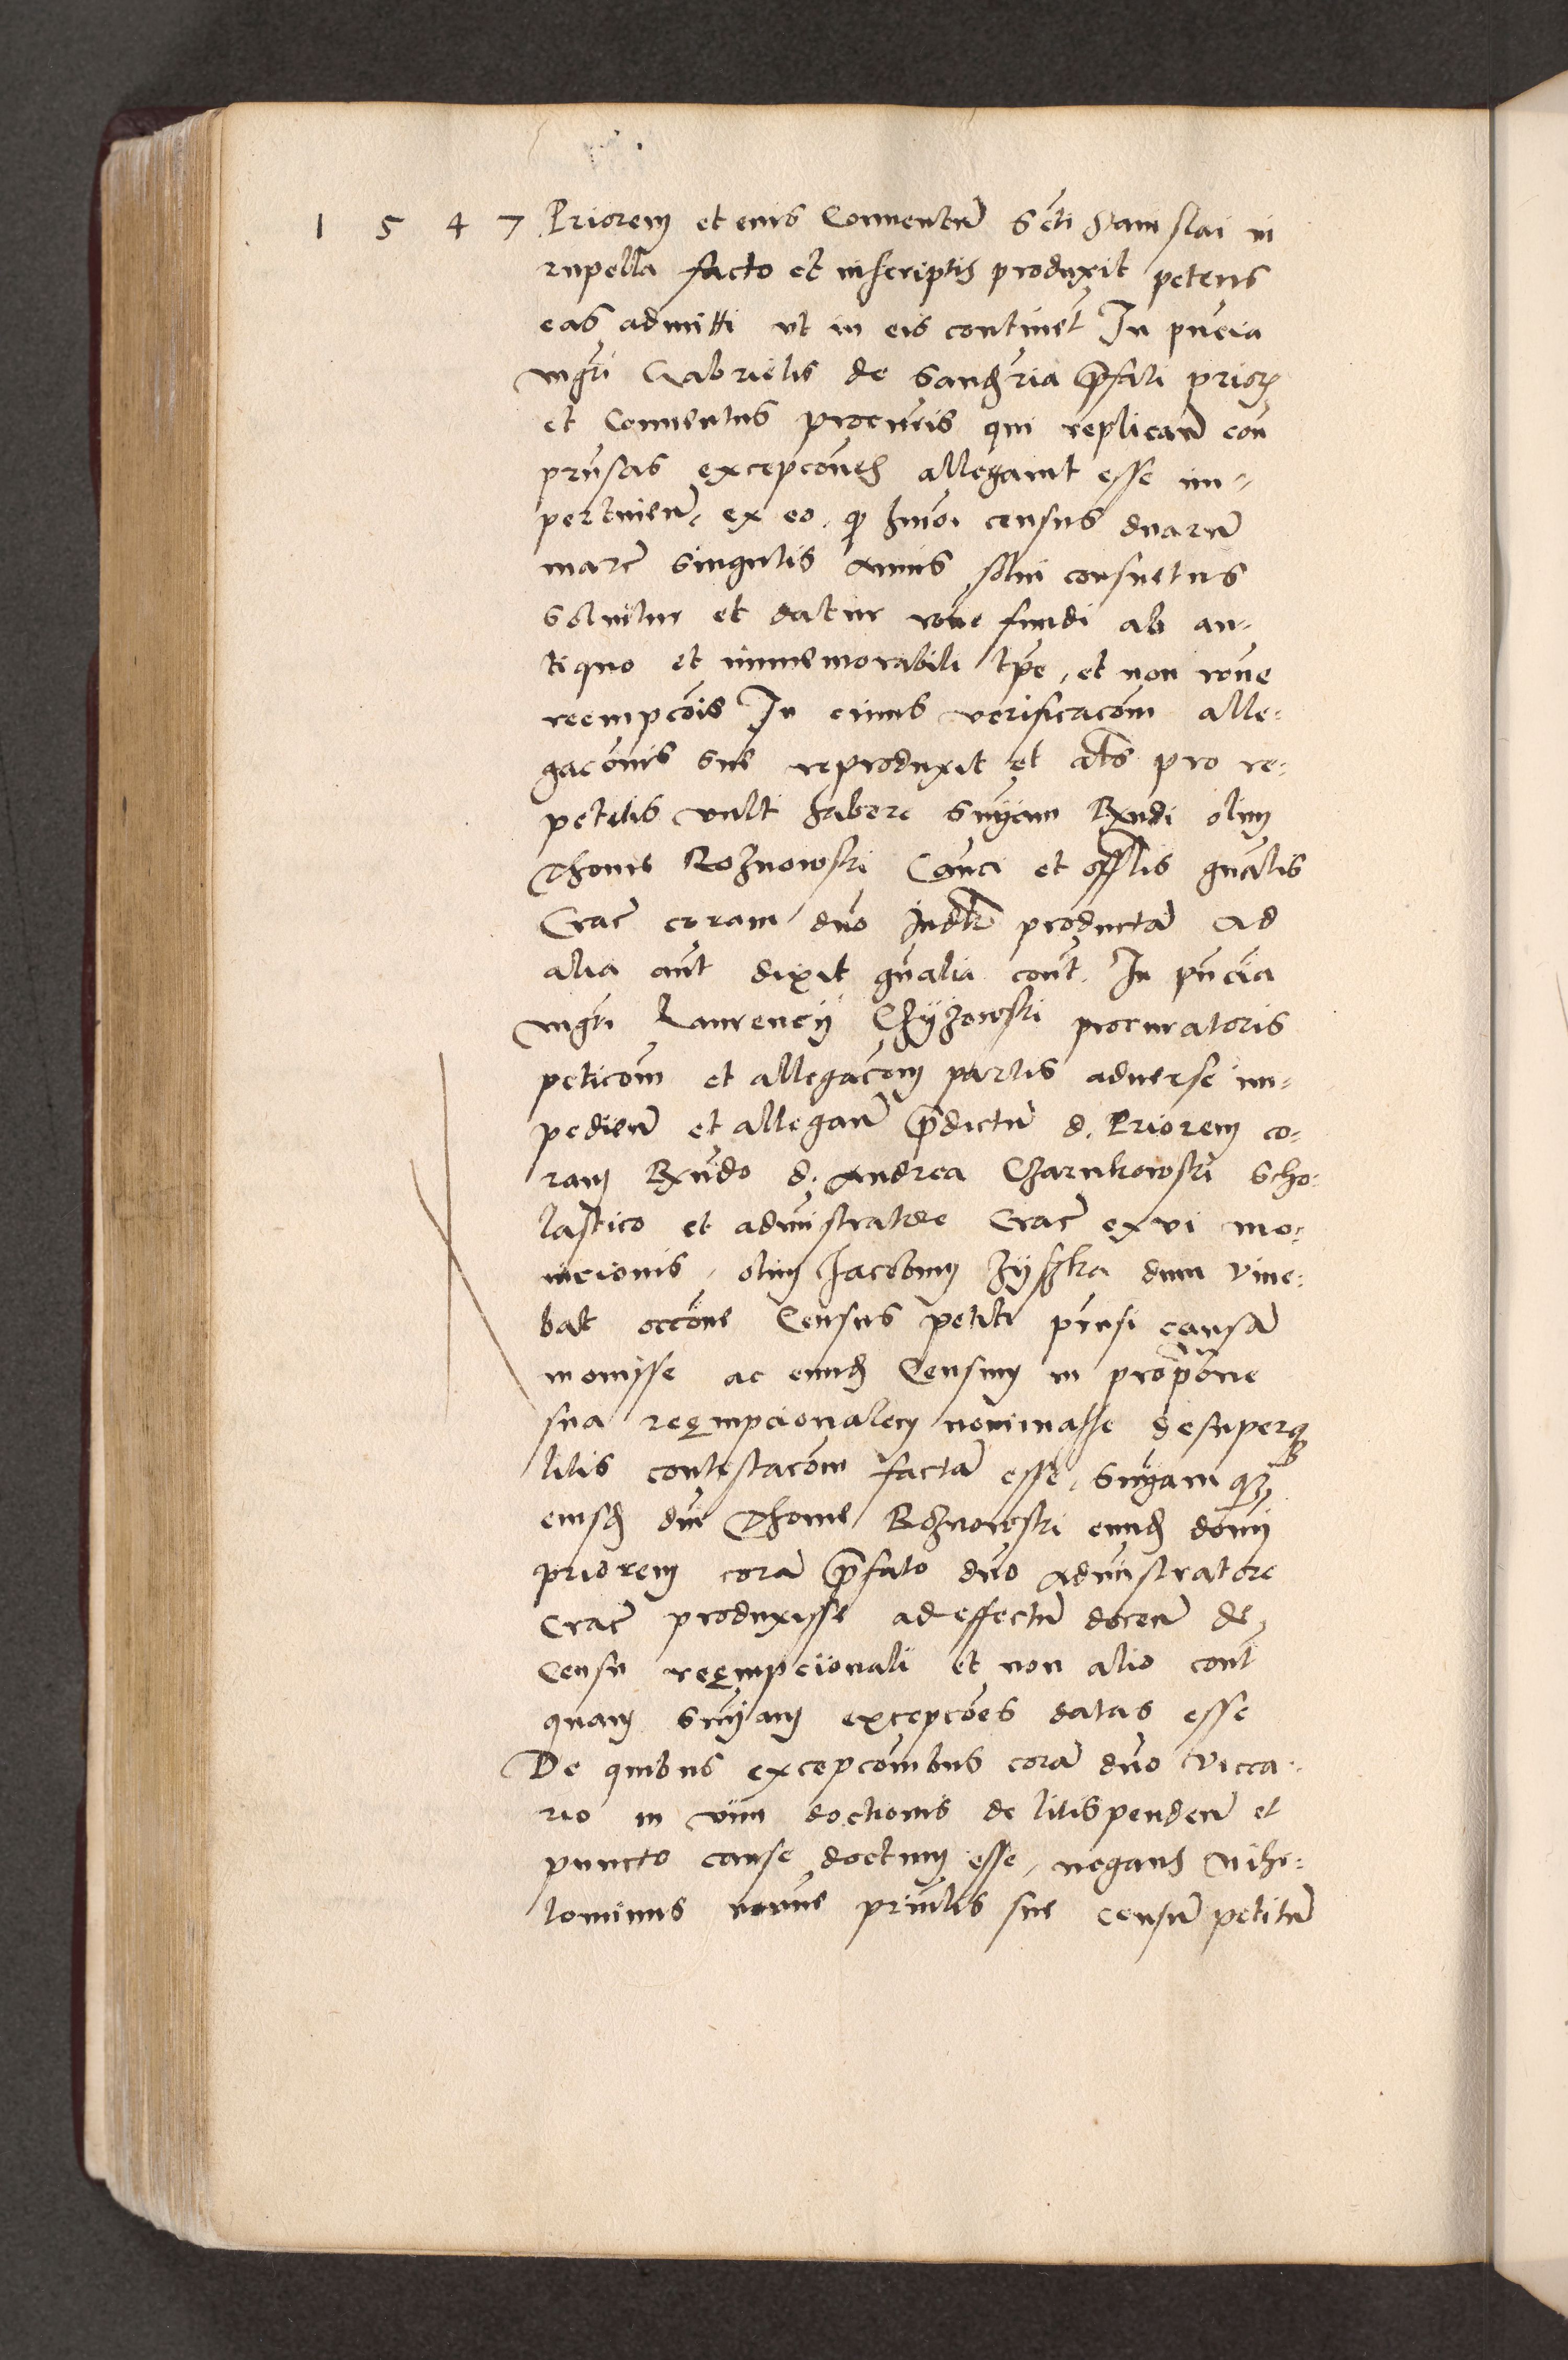 1 5 4 7 Priorem et eius Conuentu͂ S͠cti Stanislai in
rupella facto et inscriptis produxit petens
eas admitti vt in eis contine͂t In p͂ncia
mgr͂i Gabrielis de p͂fati prior͂
et Conuentus procur͂is qui replican͂ con
pr͂nsas excepco͂nes allegauit esse im-
pertinen͂. ex eo. q͂ h͂moi census duaru͂
marc͂ singulis annis solui consuetus
soluitur et datur ro͂ne fundi ab an-
tiquo et immemorabili tp͂e, et non ro͂ne
reempco͂is In cuius verificaco͂m alle-
gaco͂nis sue reproduxit et pro re-
petitis vult habere Rx͂ndi olim
Thome Rosznowski Can͂ci et off͂lis gn͂alis
Crac͂ coram dn͂o productam Ad
alia aut dixit gn͂alia cont͂. In p͂ncia
mgr͂i Laurencij Chÿzowski procuratoris
petico͂m et allegaco͂m partis aduerse im-
pedien͂ et allegan͂ p͂dictu͂ d. Priorem co-
ram Rx͂ndo d. Andrea Czarnkowski scho-
lastico et adm͂istratore Crac͂ ex vi mo-
nicionis. olim Jacobum dum viue-
bat occo͂ne Census petiti pr͂nsi causa͂
mouisse ac eund͂ Censum in propo͂ne
sua reempcionalem nominasse desuperq͂
litis contestaco͂m facta͂ esse, q͂
eiusd͂ dn͂i Thome Rosznowski eund͂ do͂m
priorem cora͂ p͂fato dn͂o Adm͂istratore
Crac͂ produxisse ad effectu͂ docen͂ de
Censu reempcionali et non alio cont͂
quam excepco͂es datas esse
De quibus excepco͂nibus cora͂ dn͂o vicca-
rio in vim doctionis de litispenden͂ et
puncto cause doctum esse, negans nihi-
lominus no͂ne sue censu͂ petitu͂